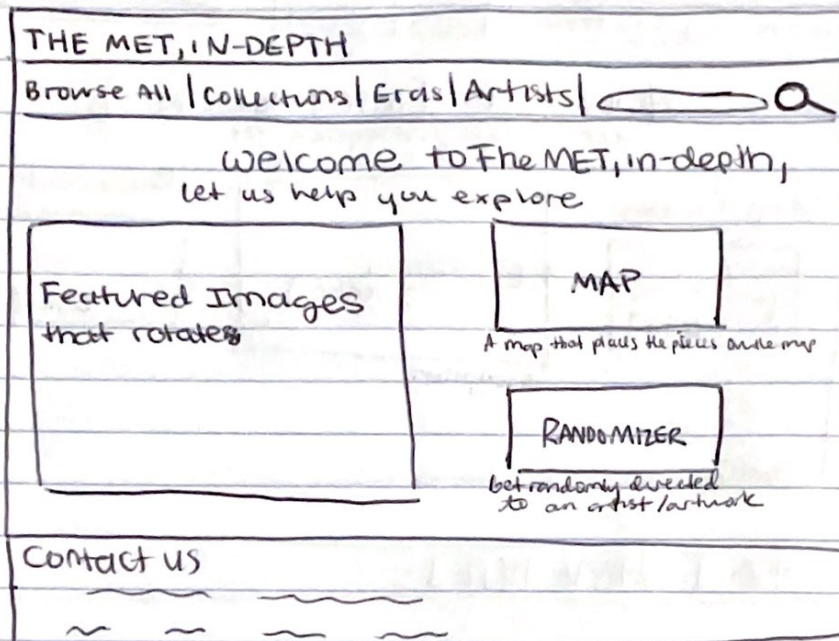 THE MET, IN-DEPTH
Browse All | Collections | Eras | Artists |
Welcome to The MET, in-depth,
let us help you explore
Featured Images
that rotates
MAP
A map that places the pieces on the map
RANDOMIZER
Get randomly directed
to an artist/artwork
Contact us